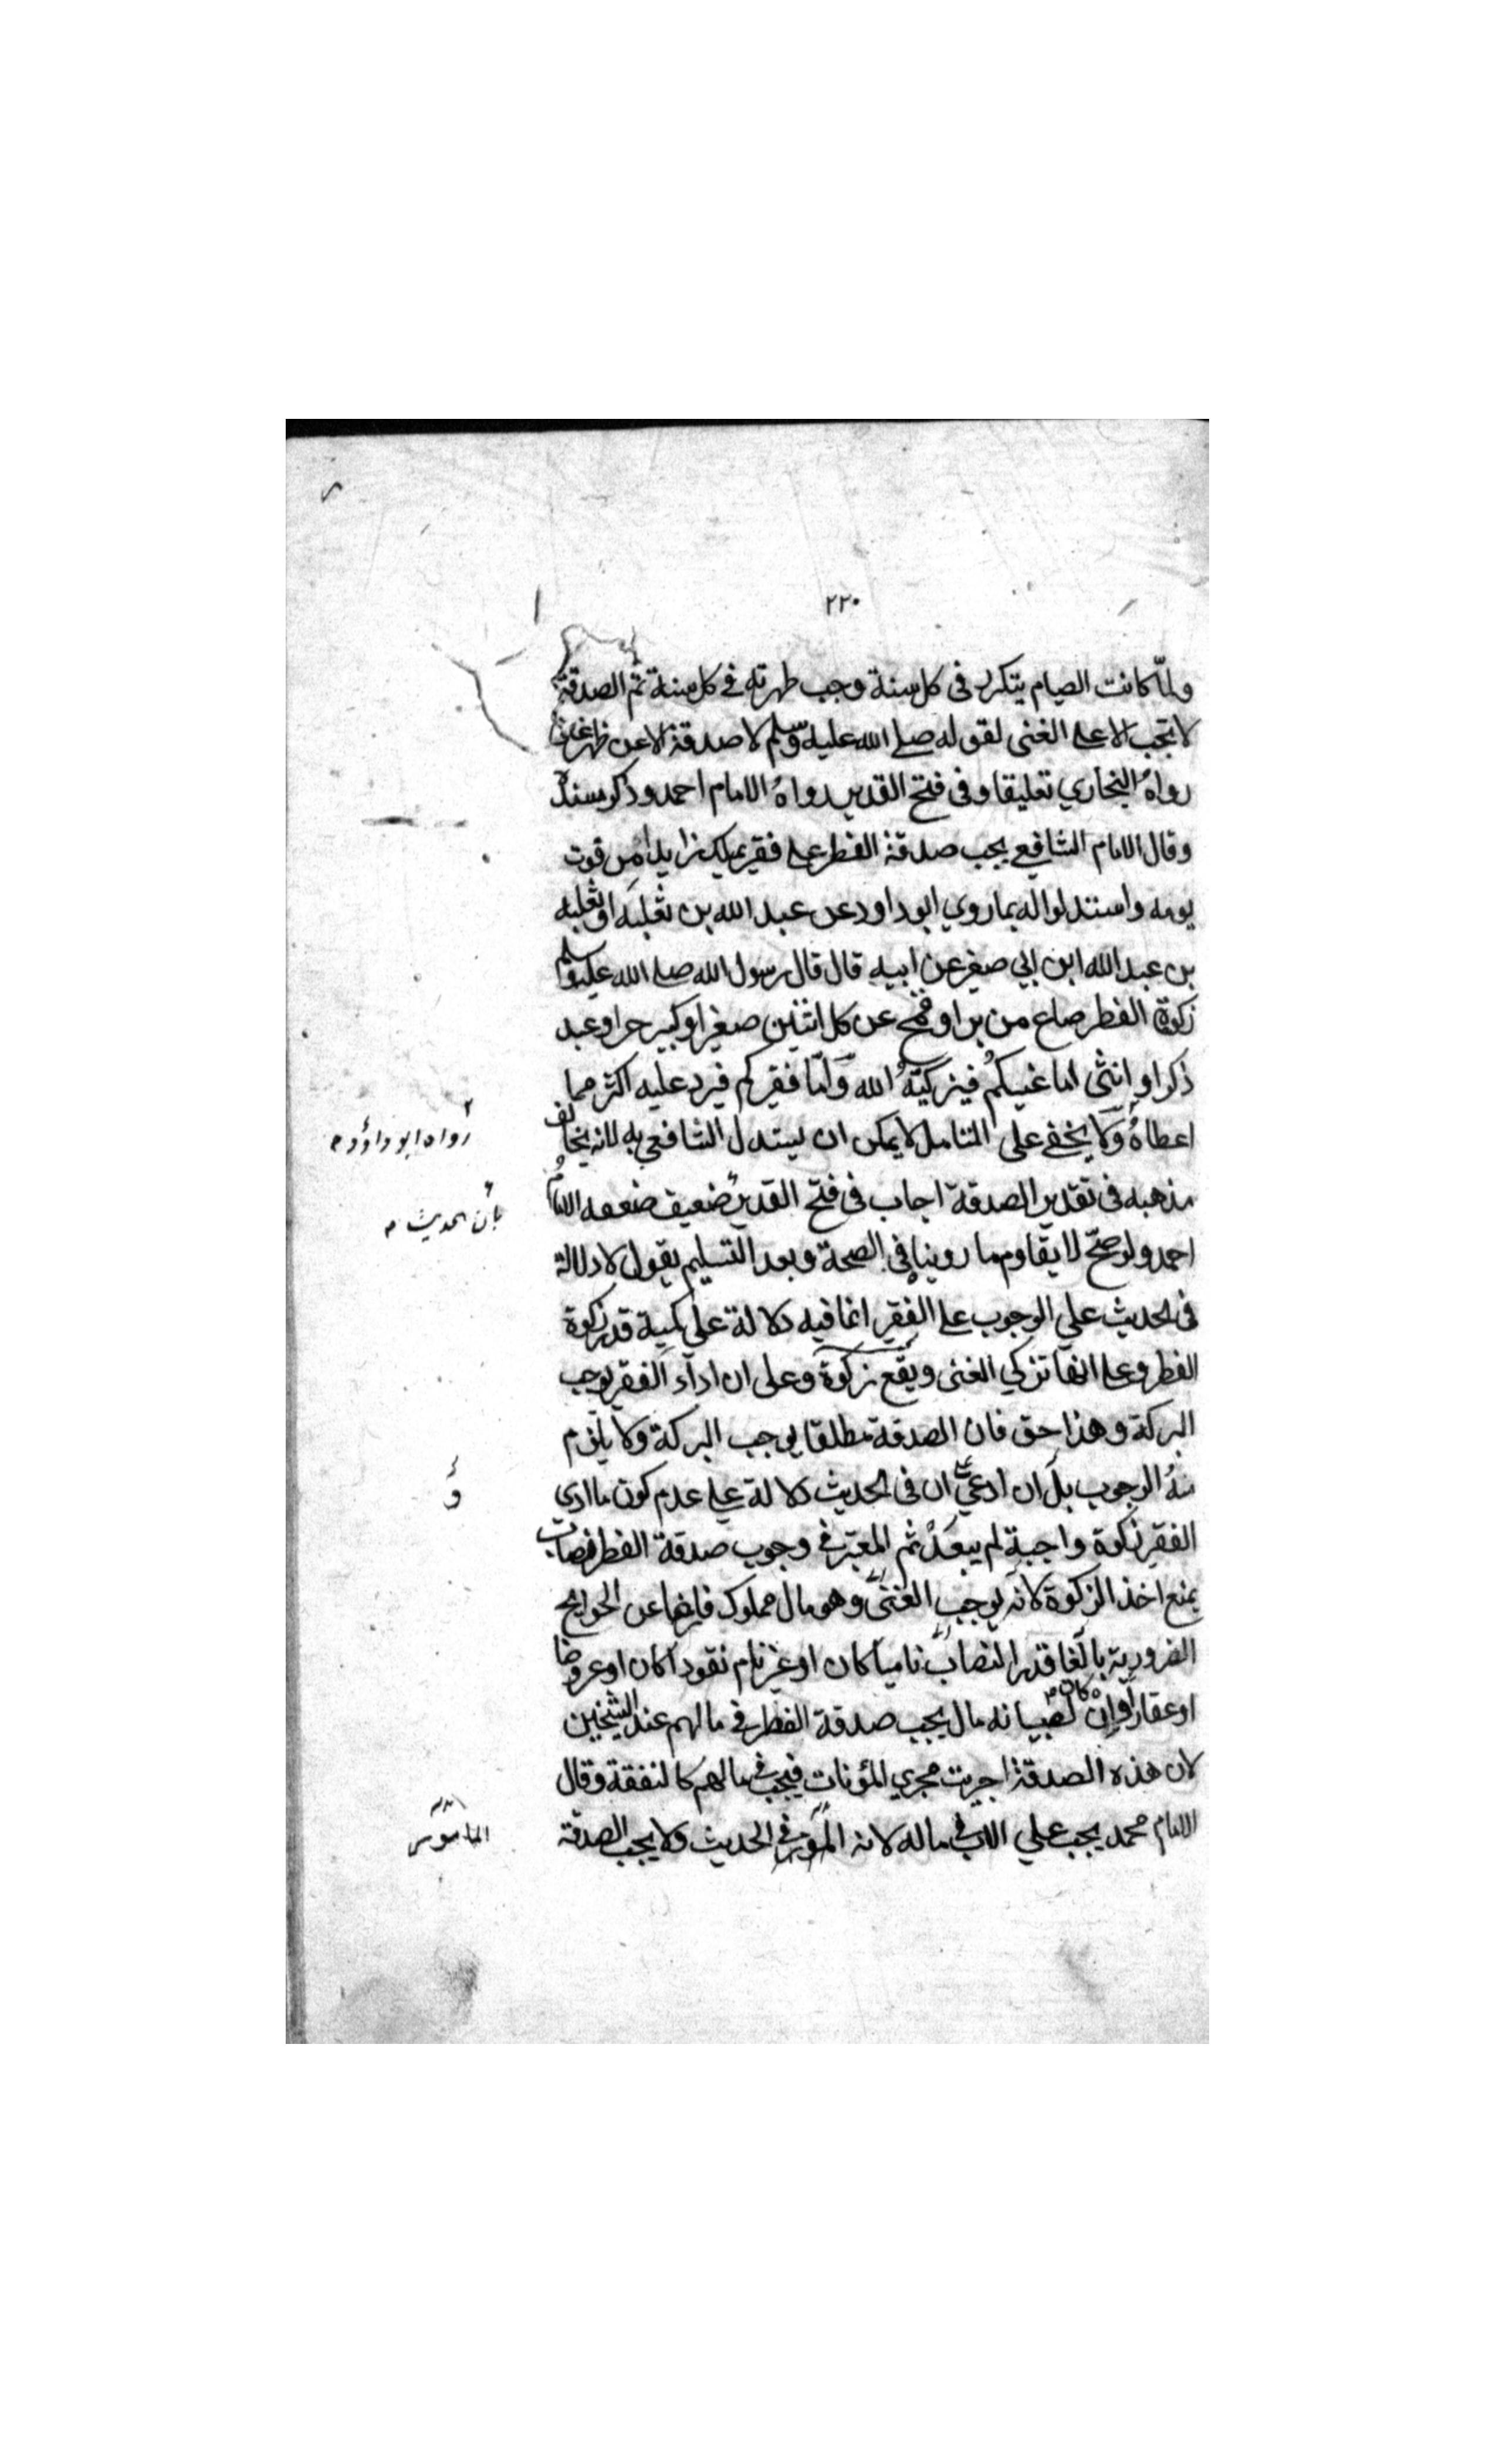 ٢٢٠
ولمّا كانت الصيام يتكرر فى كل سنة وجب طهرته فے كل سنة ثم الصدقة
لا تجب الا على الغنى لقوله صلے الله عليه وسلم لا صدقة الا عن ظهر غنى
رواه البخاري تعليقا وفى فتح القدير رواه الامام احمد وذكر مسندا
وقال الامام الشافعي يجب صدقة الفطر على فقير يملك زايدا من قوت
يومه واستدلوا له بما روي ابو داود عن عبد الله بن ثعلبه او ثعلبه
بن عبد الله ابن ابي صغير عن ابيه قال قال رسول الله صلے الله عليه وسلم
زكوة الفطر صاع من بر او قمح عن كل اثنين صغير او كبير حر او عبد
ذكر او انثى اما غنيكم فيزكيه الله واما فقيركم فيرد عليه اكثر مما
اعطاه ولا يخفے على المتامل لا يمكن ان يستدل الشافعي به لانه يخالف
رواه ابو داؤد م
مذهبه فى تقدير الصدقة اجاب فى فتح القدير ضعيف ضعفه الامام
بان الحديث م
احمد ولو صحّ لا يقاوم ما روينا فى الصحة وبعد التسليم يقول لا دلالة
فى الحديث علي الوجوب على الفقير انما فيه دلالة على كمية قدر زكوة
الفطر وعلى انها تزكي الغنى ويقع زكوة وعلى ان اداء الفقير يوجب
البركة وهذا حق فان الصدقة مطلقا يوجب البركة ولا يلزم
منه الوجوب بل ان ادعي ان فى الحديث دلالة على عدم كون ما ادى
و
الفقير زكوة واجبة لم يبعد ثم المعتبر فے وجوب صدقة الفطر نصاب
يمنع اخذ الزكوة لانه يوجب الغنى وهو مال مملوك فايضا عن الحوايج
الضرورية بالغا قدر النصاب ناميا كان او غير نام نقودا كان او عروضا
او عقارا وان كان لصبيانه مال يجب صدقة الفطر فے مالهم عند الشيخين
لان هذه الصدقة اجريت مجري المؤنات فيجب فى مالهم كالنفقة وقال
الامام محمد يجب علي الاب فى ماله لانه فى الحديث ولا يجب الصدقة